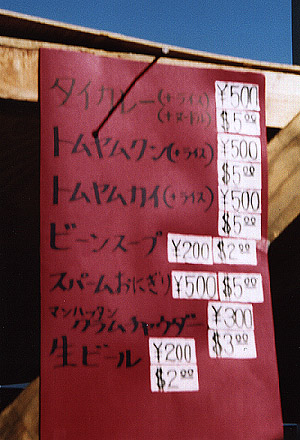 タイカレー(+ライス) ¥500
(+ヌードル) $5.00
トムヤムクン(+ライス) ¥500
$5.00
トムヤムガイ(+ライス) ¥500
$5.00
ビーンスープ ¥200 $2.00
スパームおにぎり ¥500 $5.00
マンハッタン
クラムチャウダー ¥300
$3.00
生ビール ¥200
$2.00